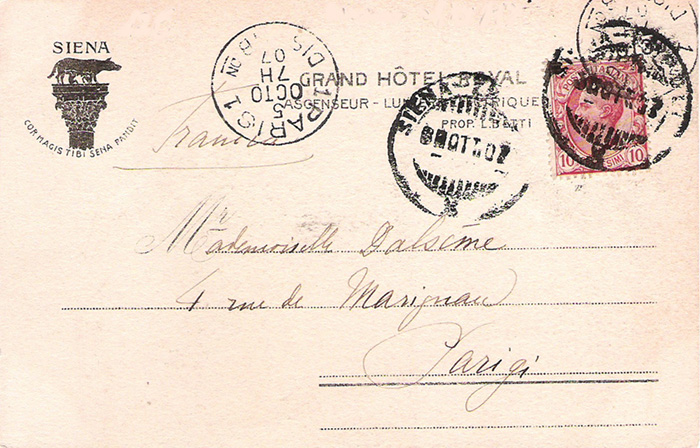 SIENA
COR MAGIS TIBI SENA PANDIT
GRAND HÔTEL ROYAL
ASCENSEUR - LUMIÈRE ÉLECTRIQUE
PROP. L. BETTI
PARIS 1
DIS
18 ON
7H
5
OCTO
07
SIENA
OTT 07
10
10
Francia
Mademoiselle Dalsème
4 rue de Marignan
Parigi